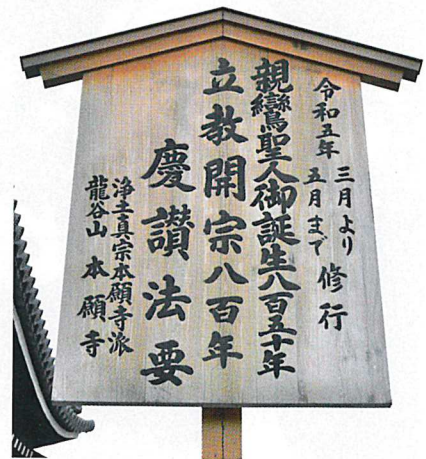 令和五年 三月より 五月まで 修行
親鸞聖人御誕生八百五十年
立教開宗八百年
慶讃法要
浄土真宗本願寺派
龍谷山 本願寺